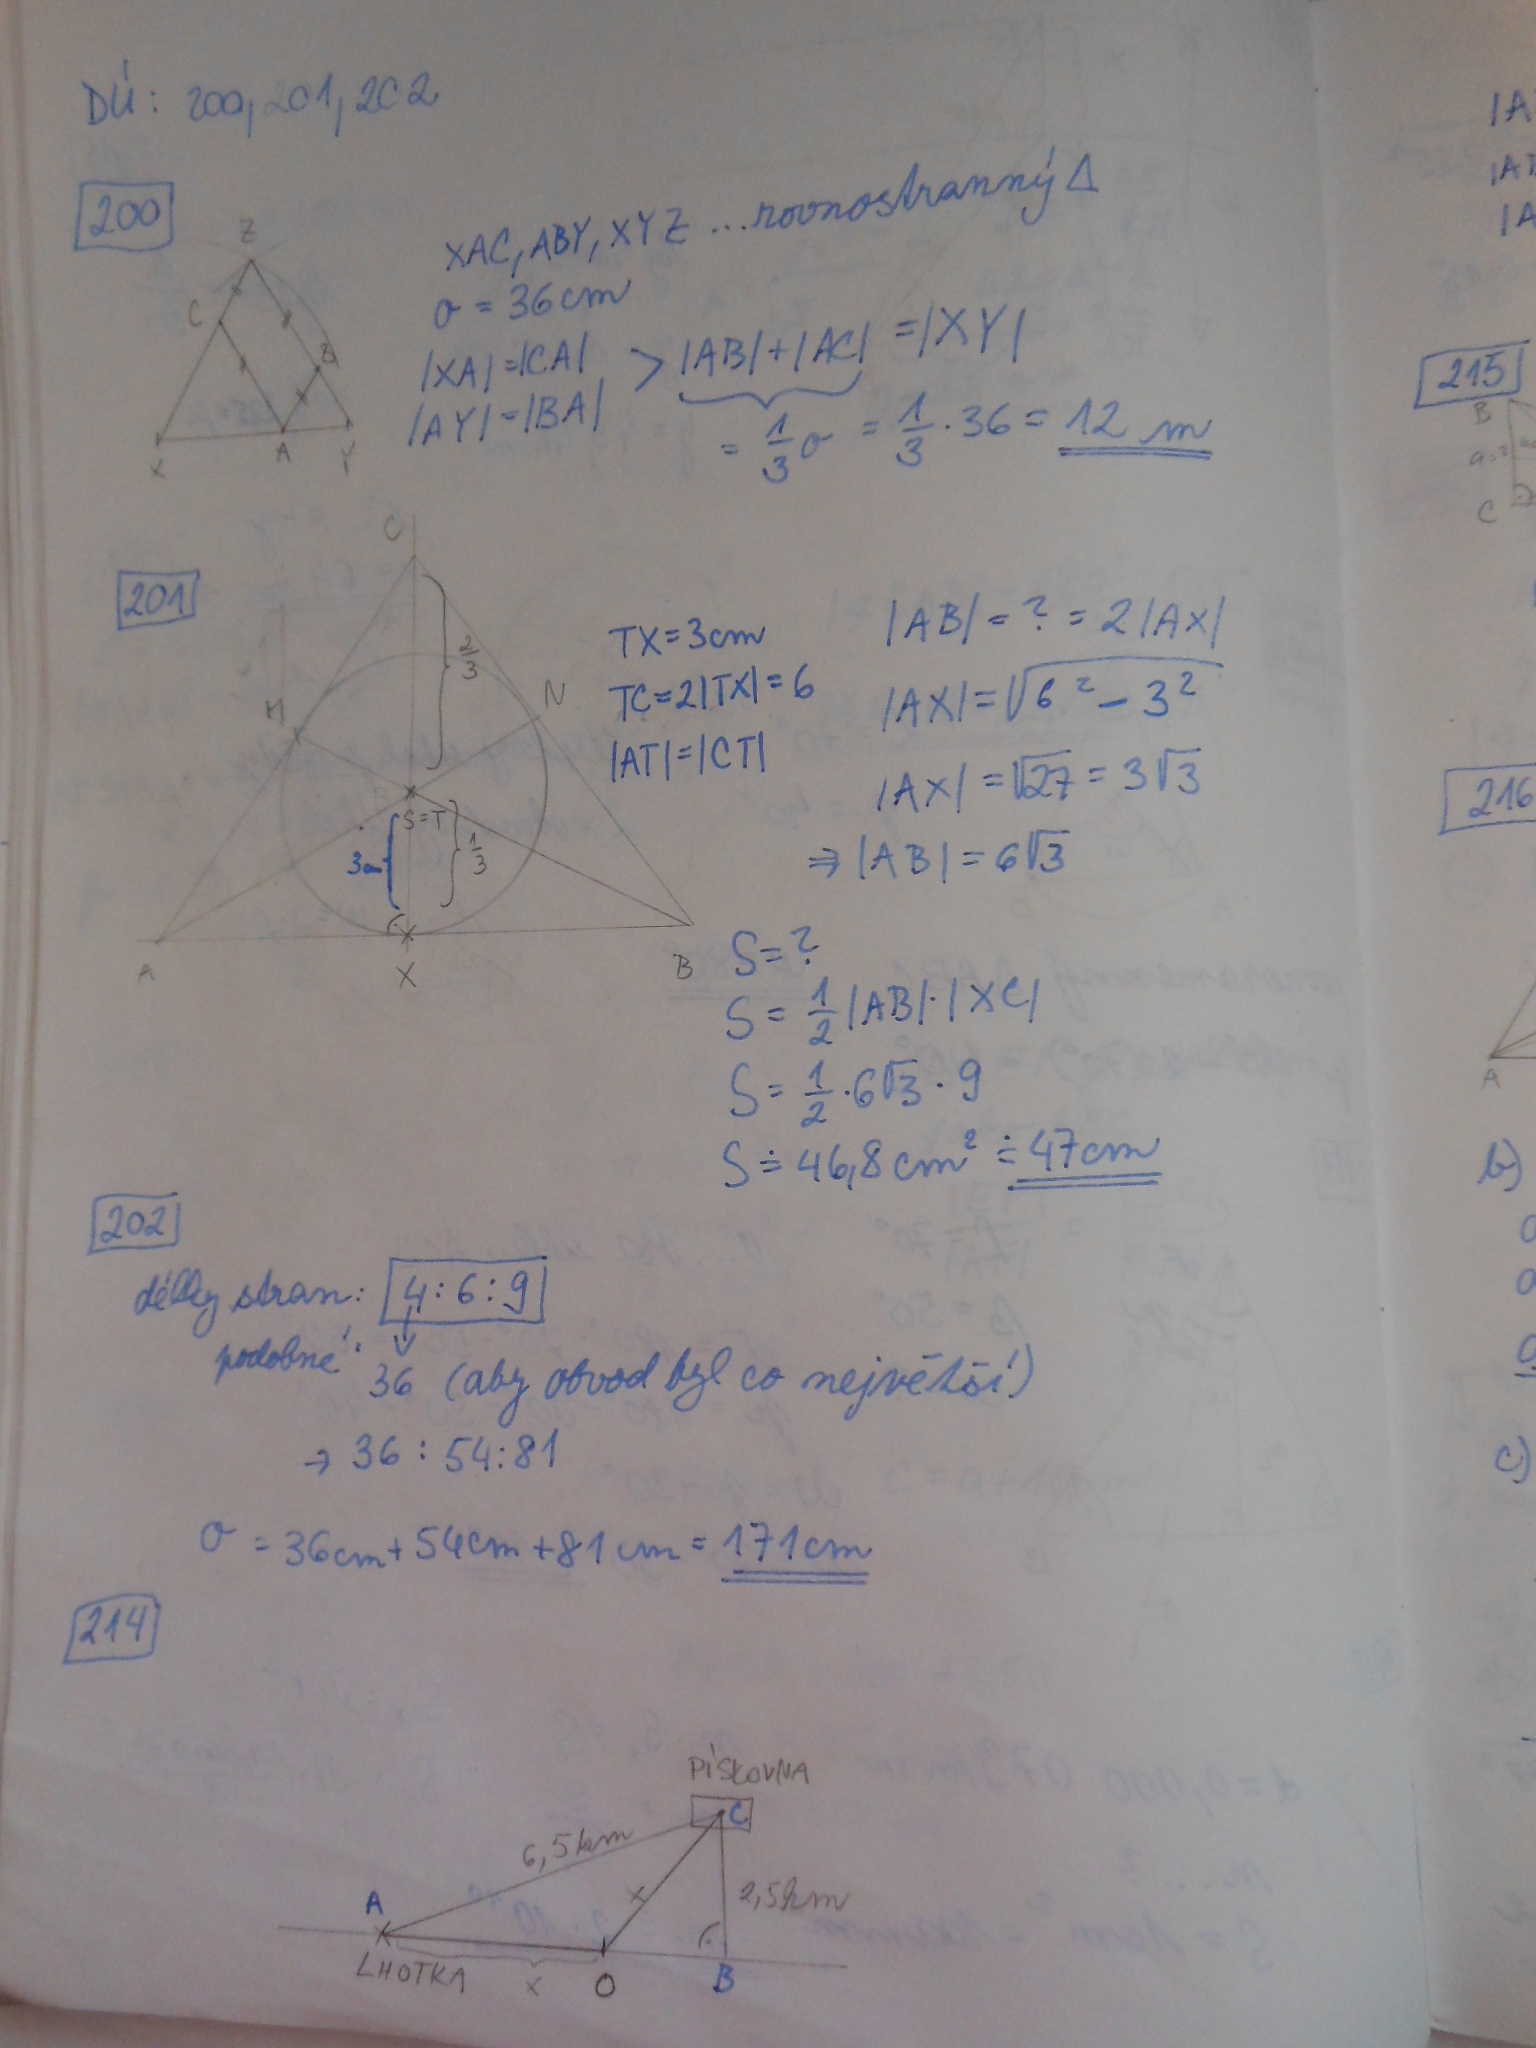 DÚ: 200, 201, 202
200
Z
C
B
X A Y
XAC, ABY, XYZ ... rovnostranný Δ
o = 36 cm
|XA| = |CA|
|AY| = |BA|
> |AB| + |AC| = |XY|
= 1/3 o = 1/3 · 36 = 12 m
201
C
2/3
M N
S=T
3cm
1/3
A X B
TX = 3cm
TC = 2|TX| = 6
|AT| = |CT|
|AB| = ? = 2|AX|
|AX| = √6² - 3²
|AX| = √27 = 3√3
⇒ |AB| = 6√3
S = ?
S = 1/2 |AB| · |XC|
S = 1/2 · 6√3 · 9
S ≐ 46,8 cm² ≐ 47 cm
202
délky stran: 4 : 6 : 9
podobné:
36 (aby obvod byl co největší)
→ 36 : 54 : 81
o = 36cm + 54cm + 81 cm = 171 cm
214
PÍSKOVNA
C
6,5 km
A
x
2,5 km
LHOTKA x O B
|A
|AT
|A
215
B
a=?
C
216
A
b)
c)